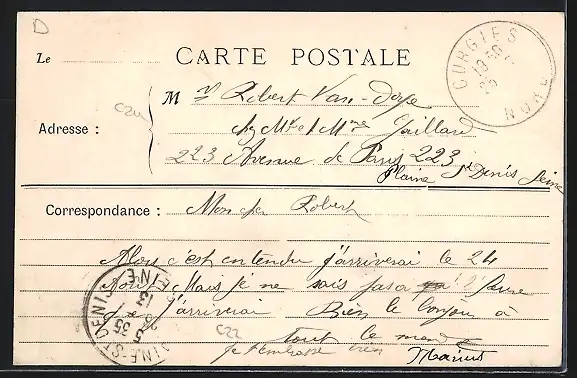 D
Le
CARTE POSTALE
GORGIES
NORD
M
Robert Van-Dope
Adresse :
chez Mr et Mme Gaillard
223 Avenue de Paris 223
Plaine St Denis Seine
Correspondance : Mon cher Robert
Alors c'est entendu j'arriverai le 24
Mais je ne sais pas a l'heure
que j'arriverai Bien le bonjour à
tout le monde
Je t'embrasse bien Marius
C22